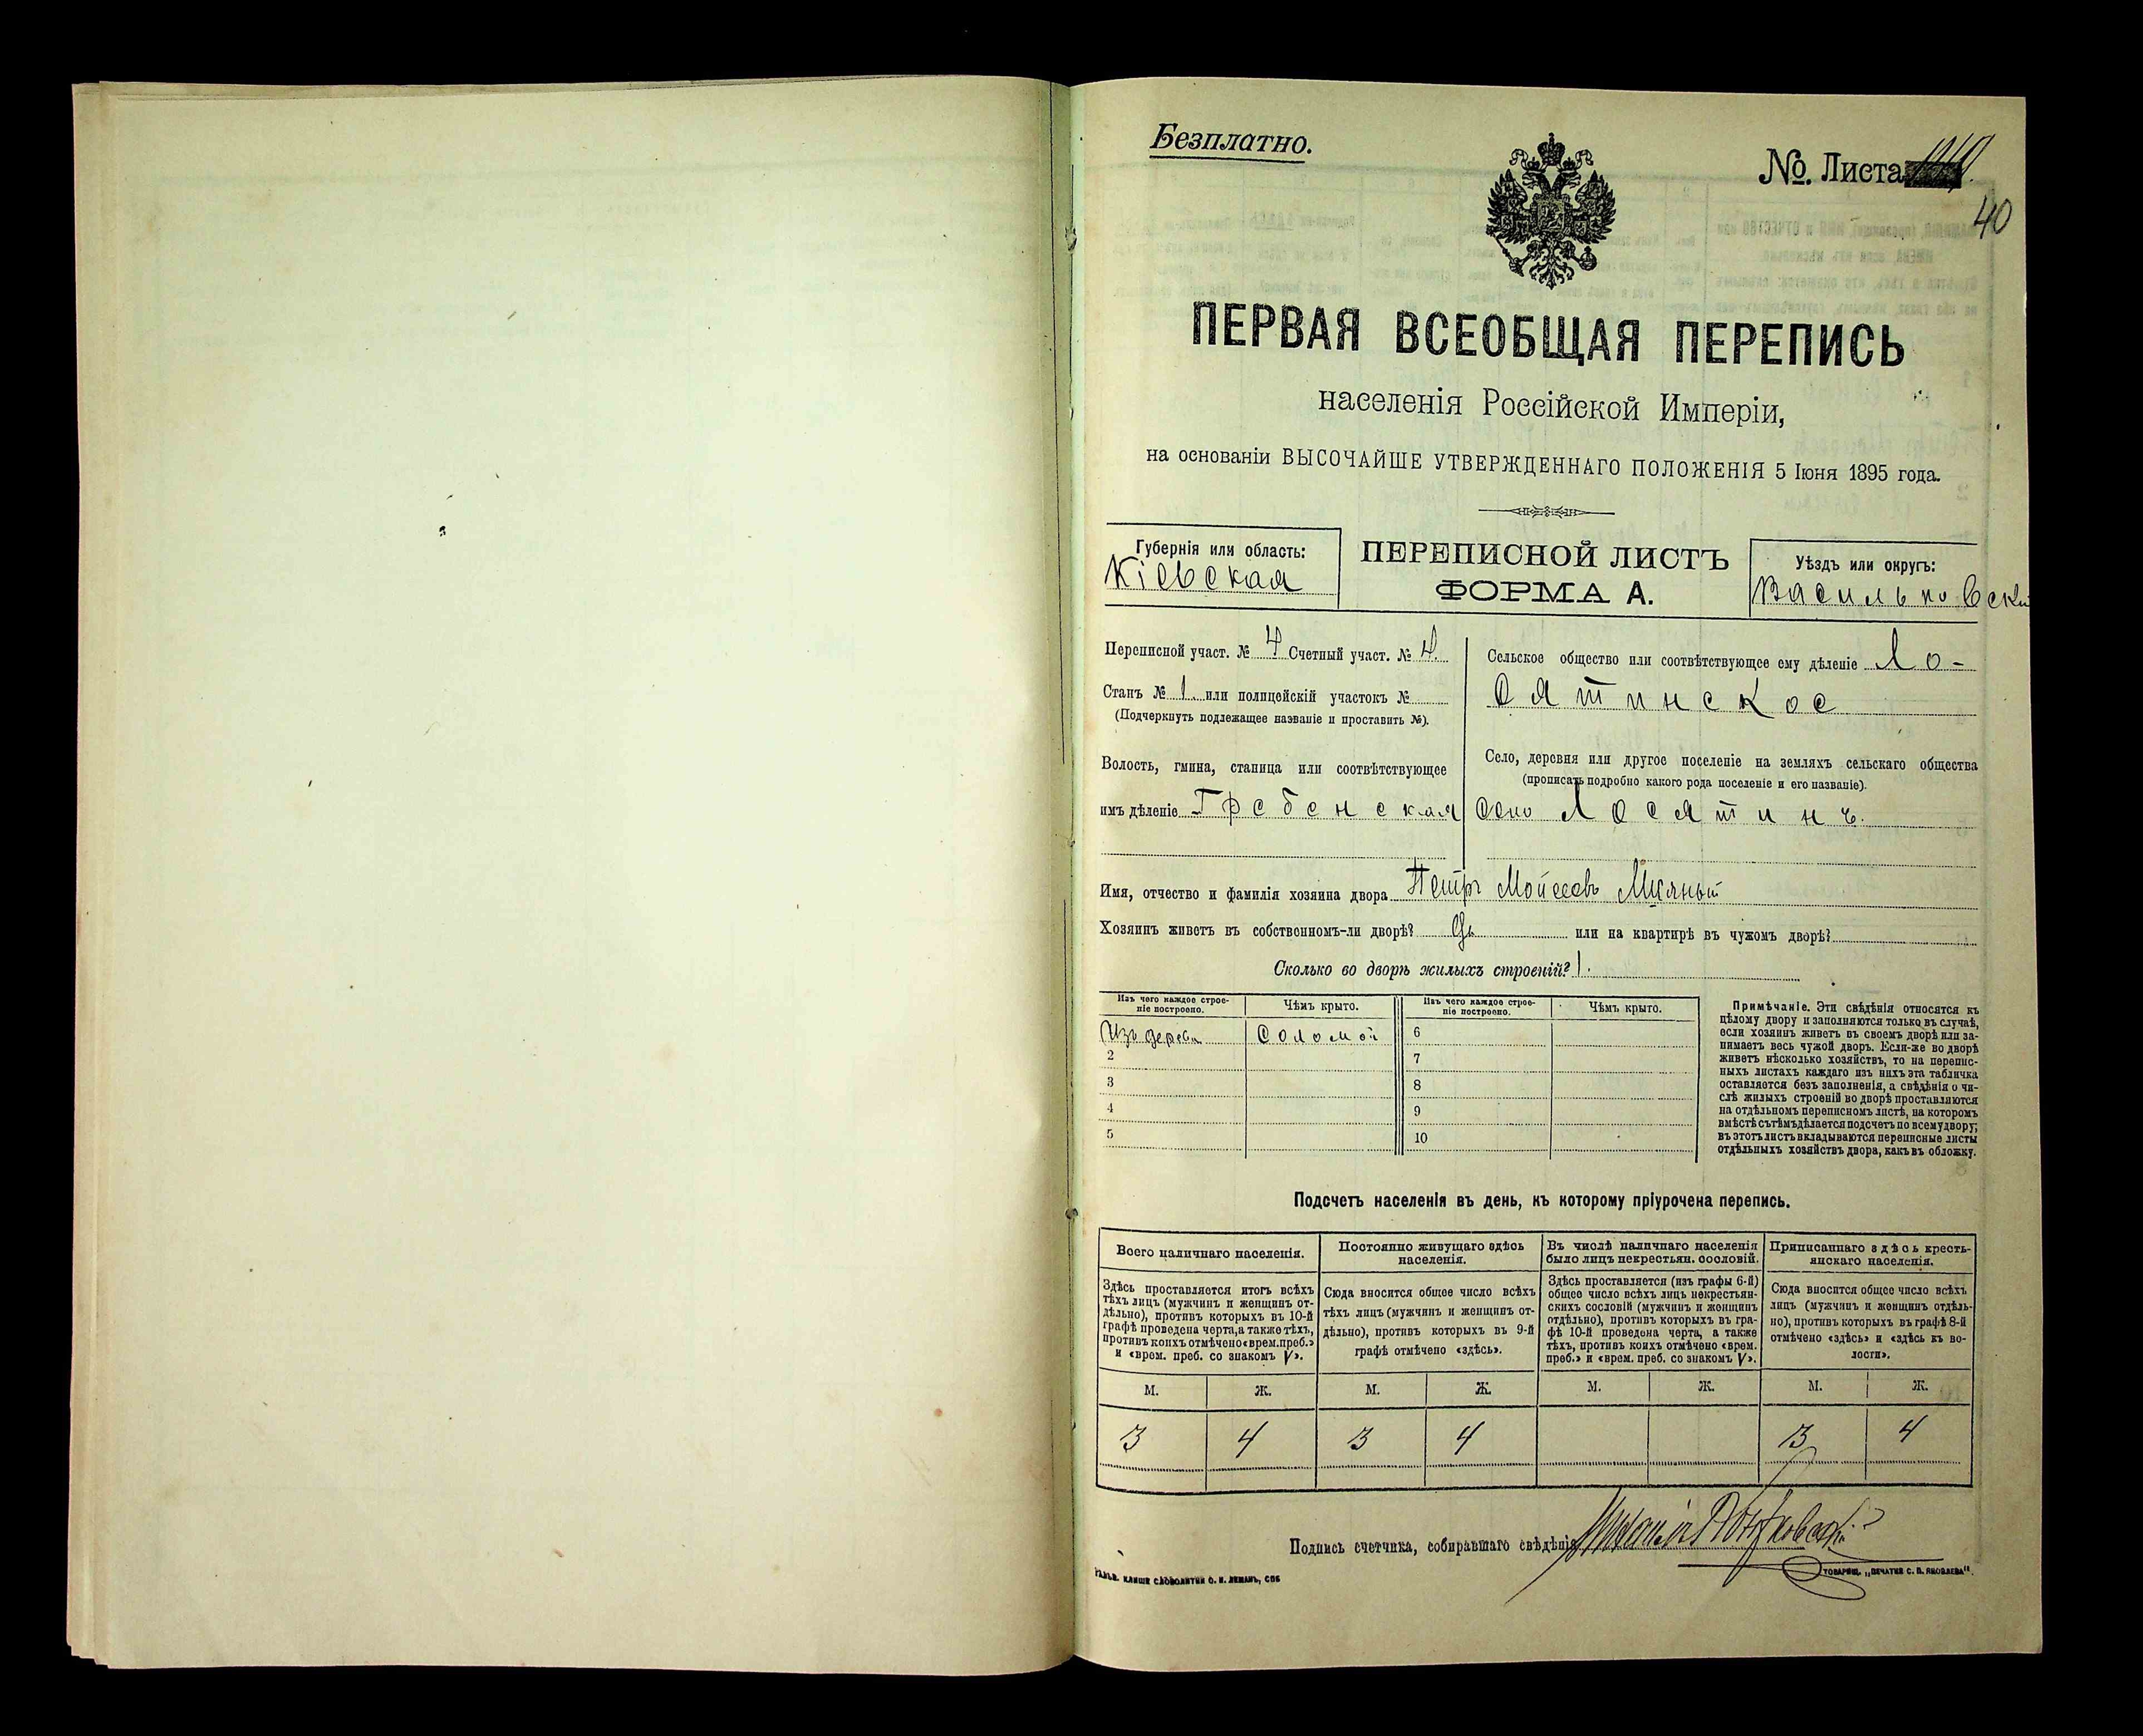 Безплатно.
№. Листа
40
ПЕРВАЯ ВСЕОБЩАЯ ПЕРЕПИСЬ
населенія Россійской Имперіи,
на основаніи ВЫСОЧАЙШЕ УТВЕРЖДЕННАГО ПОЛОЖЕНІЯ 5 Іюня 1895 года.
Губернія или область:
Кіевская
ПЕРЕПИСНОЙ ЛИСТЪ
ФОРМА А.
Уѣздъ или округъ:
Васильковскій
Переписной участ. № 4 Счетный участ. № 4.
Станъ № 1. или полицейскій участокъ №
(Подчеркнуть подлежащее названіе и проставить №).
Волость, гмина, станица или соотвѣтствующее
имъ дѣленіе Гребенская
Сельское общество или соотвѣтствующее ему дѣленіе Ло-
сятинское
Село, деревня или другое поселеніе на земляхъ сельскаго общества
(прописать подробно какого рода поселеніе и его названіе).
село Лосятинъ.
Имя, отчество и фамилія хозяина двора Петръ Мойсеевъ
Хозяинъ живетъ въ собственномъ-ли дворѣ? Да или на квартирѣ въ чужомъ дворѣ?
Сколько во дворѣ жилыхъ строеній? 1.
Изъ чего каждое строе-
ніе построено.
Чѣмъ крыто.
Изъ чего каждое строе-
ніе построено.
Чѣмъ крыто.
Изъ дерева
Соломой
2
3
4
5
6
7
8
9
10
Примѣчаніе. Эти свѣдѣнія относятся къ
цѣлому двору и заполняются только въ случаѣ,
если хозяинъ живетъ въ своемъ дворѣ или за-
нимаетъ весь чужой дворъ. Если-же во дворѣ
живетъ нѣсколько хозяйствъ, то на перепис-
ныхъ листахъ каждаго изъ нихъ эта табличка
оставляется безъ заполненія, а свѣдѣнія о чи-
слѣ жилыхъ строеній во дворѣ проставляются
на отдѣльномъ переписномъ листѣ, на которомъ
вмѣстѣ съ тѣмъ дѣлается подсчетъ по всему двору;
въ этотъ листъ вкладываются переписные листы
отдѣльныхъ хозяйствъ двора, какъ въ обложку.
Подсчетъ населенія въ день, къ которому пріурочена перепись.
Всего наличнаго населенія.
Здѣсь проставляется итогъ всѣхъ
тѣхъ лицъ (мужчинъ и женщинъ от-
дѣльно), противъ которыхъ въ 10-й
графѣ проведена черта, а также тѣхъ,
противъ коихъ отмѣчено «врем. преб.»
и «врем. преб. со знакомъ V».
Постоянно живущаго здѣсь
населенія.
Сюда вносится общее число всѣхъ
тѣхъ лицъ (мужчинъ и женщинъ от-
дѣльно), противъ которыхъ въ 9-й
графѣ отмѣчено «здѣсь».
Въ числѣ наличнаго населенія
было лицъ некрестьян. сословій.
Здѣсь проставляется (изъ графы 6-й)
общее число всѣхъ лицъ некрестьян-
скихъ сословій (мужчинъ и женщинъ
отдѣльно), противъ которыхъ въ гра-
фѣ 10-й проведена черта, а также
тѣхъ, противъ коихъ отмѣчено «врем.
преб.» и «врем. преб. со знакомъ V».
Приписаннаго здѣсь кресть-
янскаго населенія.
Сюда вносится общее число всѣхъ
лицъ (мужчинъ и женщинъ отдѣль-
но), противъ которыхъ въ графѣ 8-й
отмѣчено «здѣсь» и «здѣсь къ во-
лости».
М. Ж. М. Ж. М. Ж. М. Ж.
3 4 3 4 3 4
Подпись счетчика, собиравшаго свѣдѣнія
ГАЛЬВ. КЛИШЕ СЛОВОЛИТНИ О. И. ЛЕМАНЪ, СПБ
ТОВАРИЩ. „ПЕЧАТНЯ С. П. ЯКОВЛЕВА".